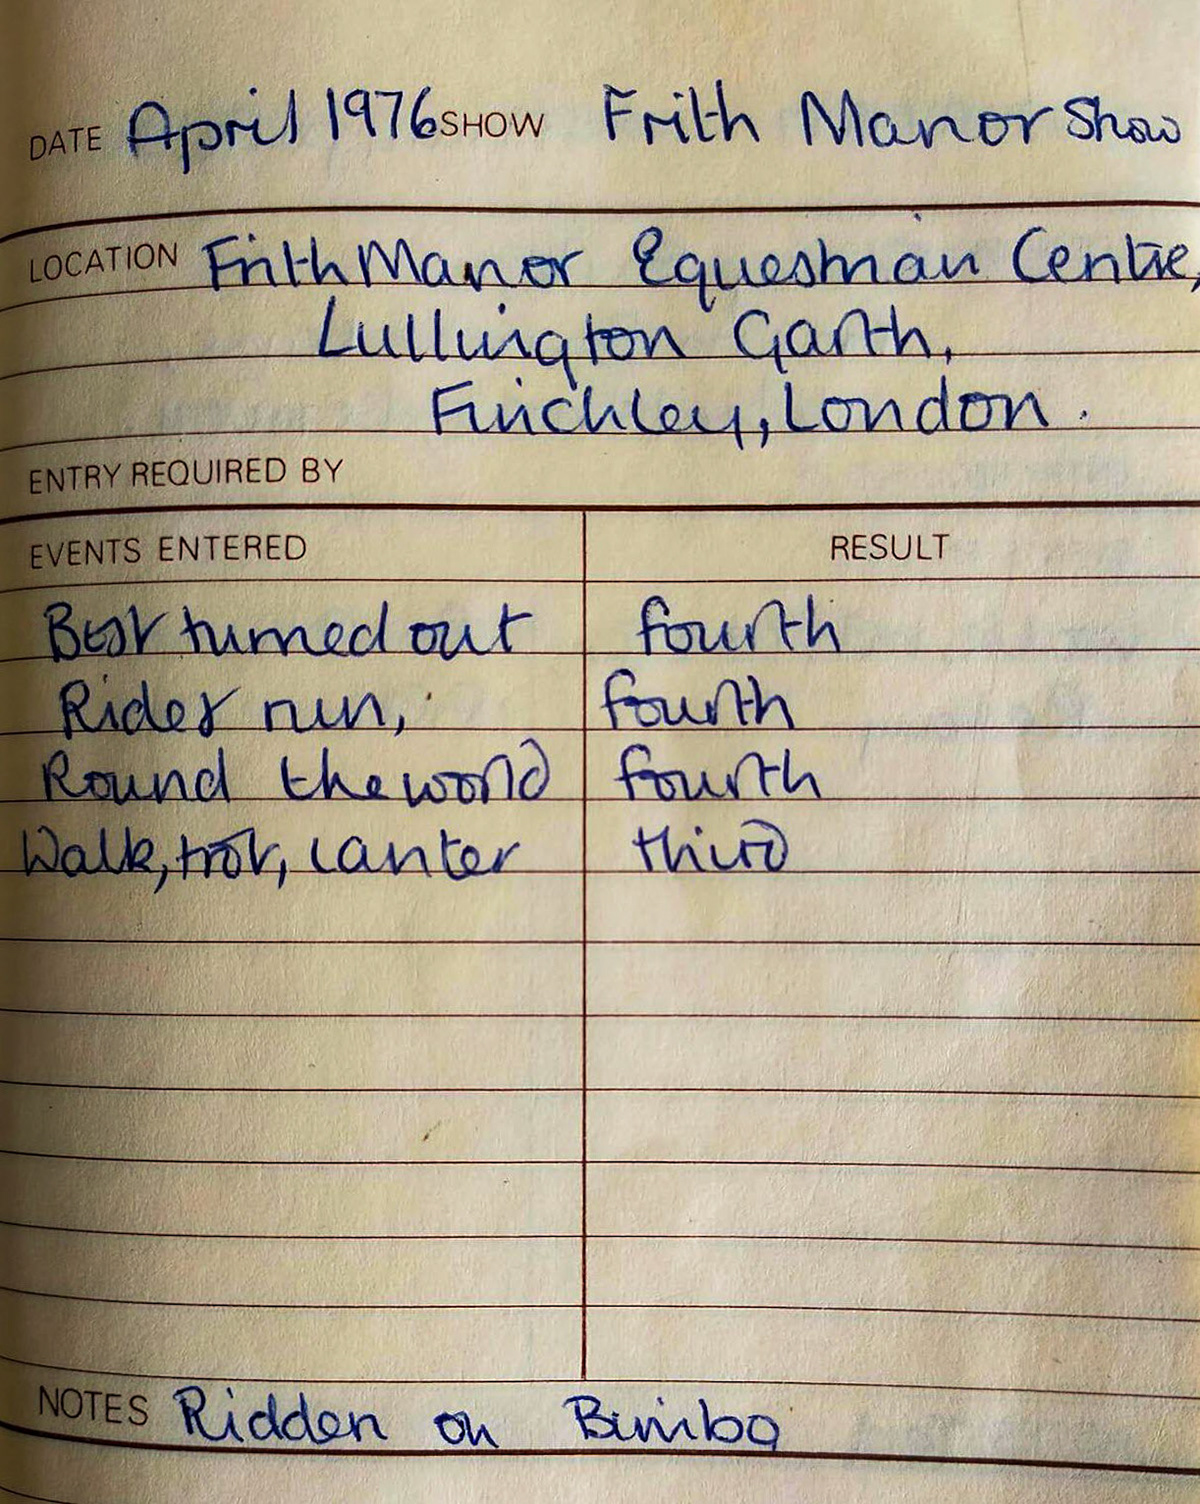 DATE April 1976 SHOW Frith Manor Show
LOCATION Frith Manor Equestrian Centre,
Lullington Garth,
Finchley, London.
ENTRY REQUIRED BY
EVENTS ENTERED RESULT
Best turned out fourth
Rider run, fourth
Round the world fourth
Walk, trot, canter third
NOTES Ridden on Bimbo